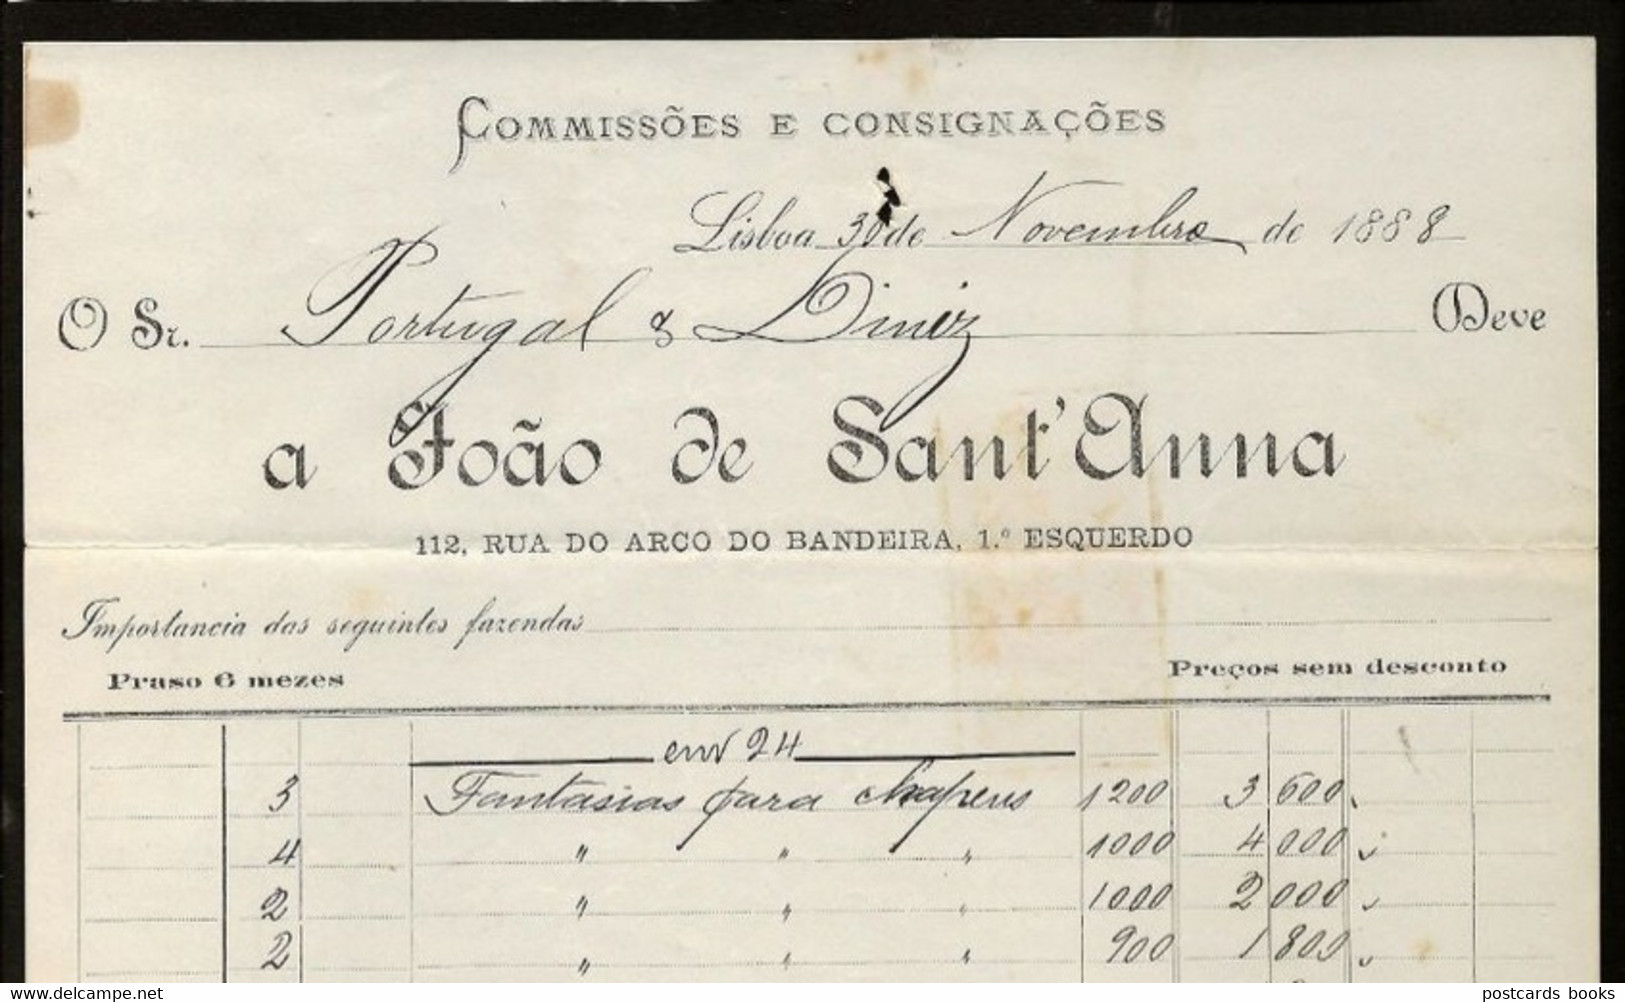 COMMISSÕES E CONSIGNAÇÕES
Lisboa 30 de Novembro de 1888
O Sr. Portugal & Diniz Deve
a João de Sant'Anna
112, RUA DO ARCO DO BANDEIRA, 1.º ESQUERDO
Importancia das seguintes fazendas
Praso 6 mezes Preços sem desconto
24
3 Fantasias para chapeus 1200 3 600
4 " " " 1000 4 000
2 " " " 1000 2 000
2 " " " 900 1 800
postcards books